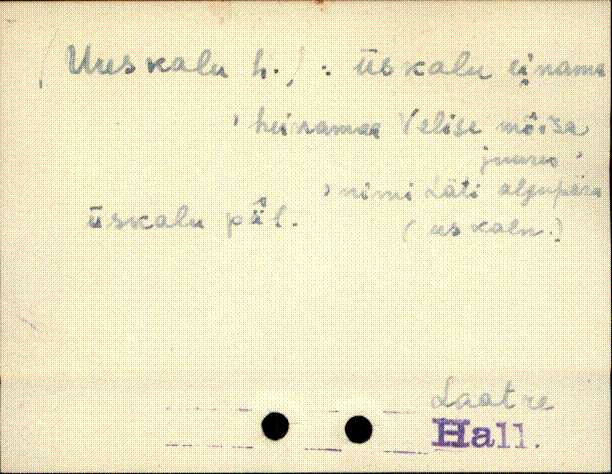 (Uuskalu h.) : üskalu einama
' heinamaa Velise mõisa
juures '
' nimi Läti algupära
üskalu pǟl. (uskaln.)
Laatre
Hall.